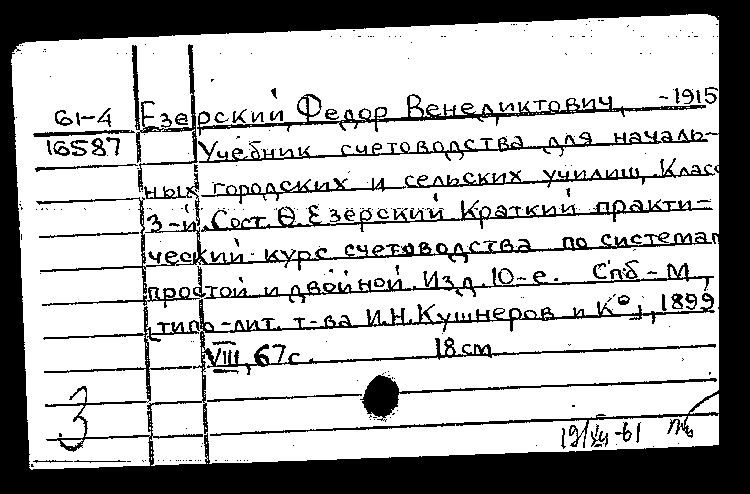 61-4 Езерский, Федор Венедиктович, -1915
16587 Учебник счетоводства для началь-
ных городских и сельских училищ. Класс
3-й. Сост. Ѳ. Езерский Краткий практи-
ческий курс счетоводства по системам
простой и двойной. Изд. 10-е. Спб-М,
[типо-лит. т-ва И.Н. Кушнеров и К°], 1899
VIII, 67с. 18см
3
19/XII-61